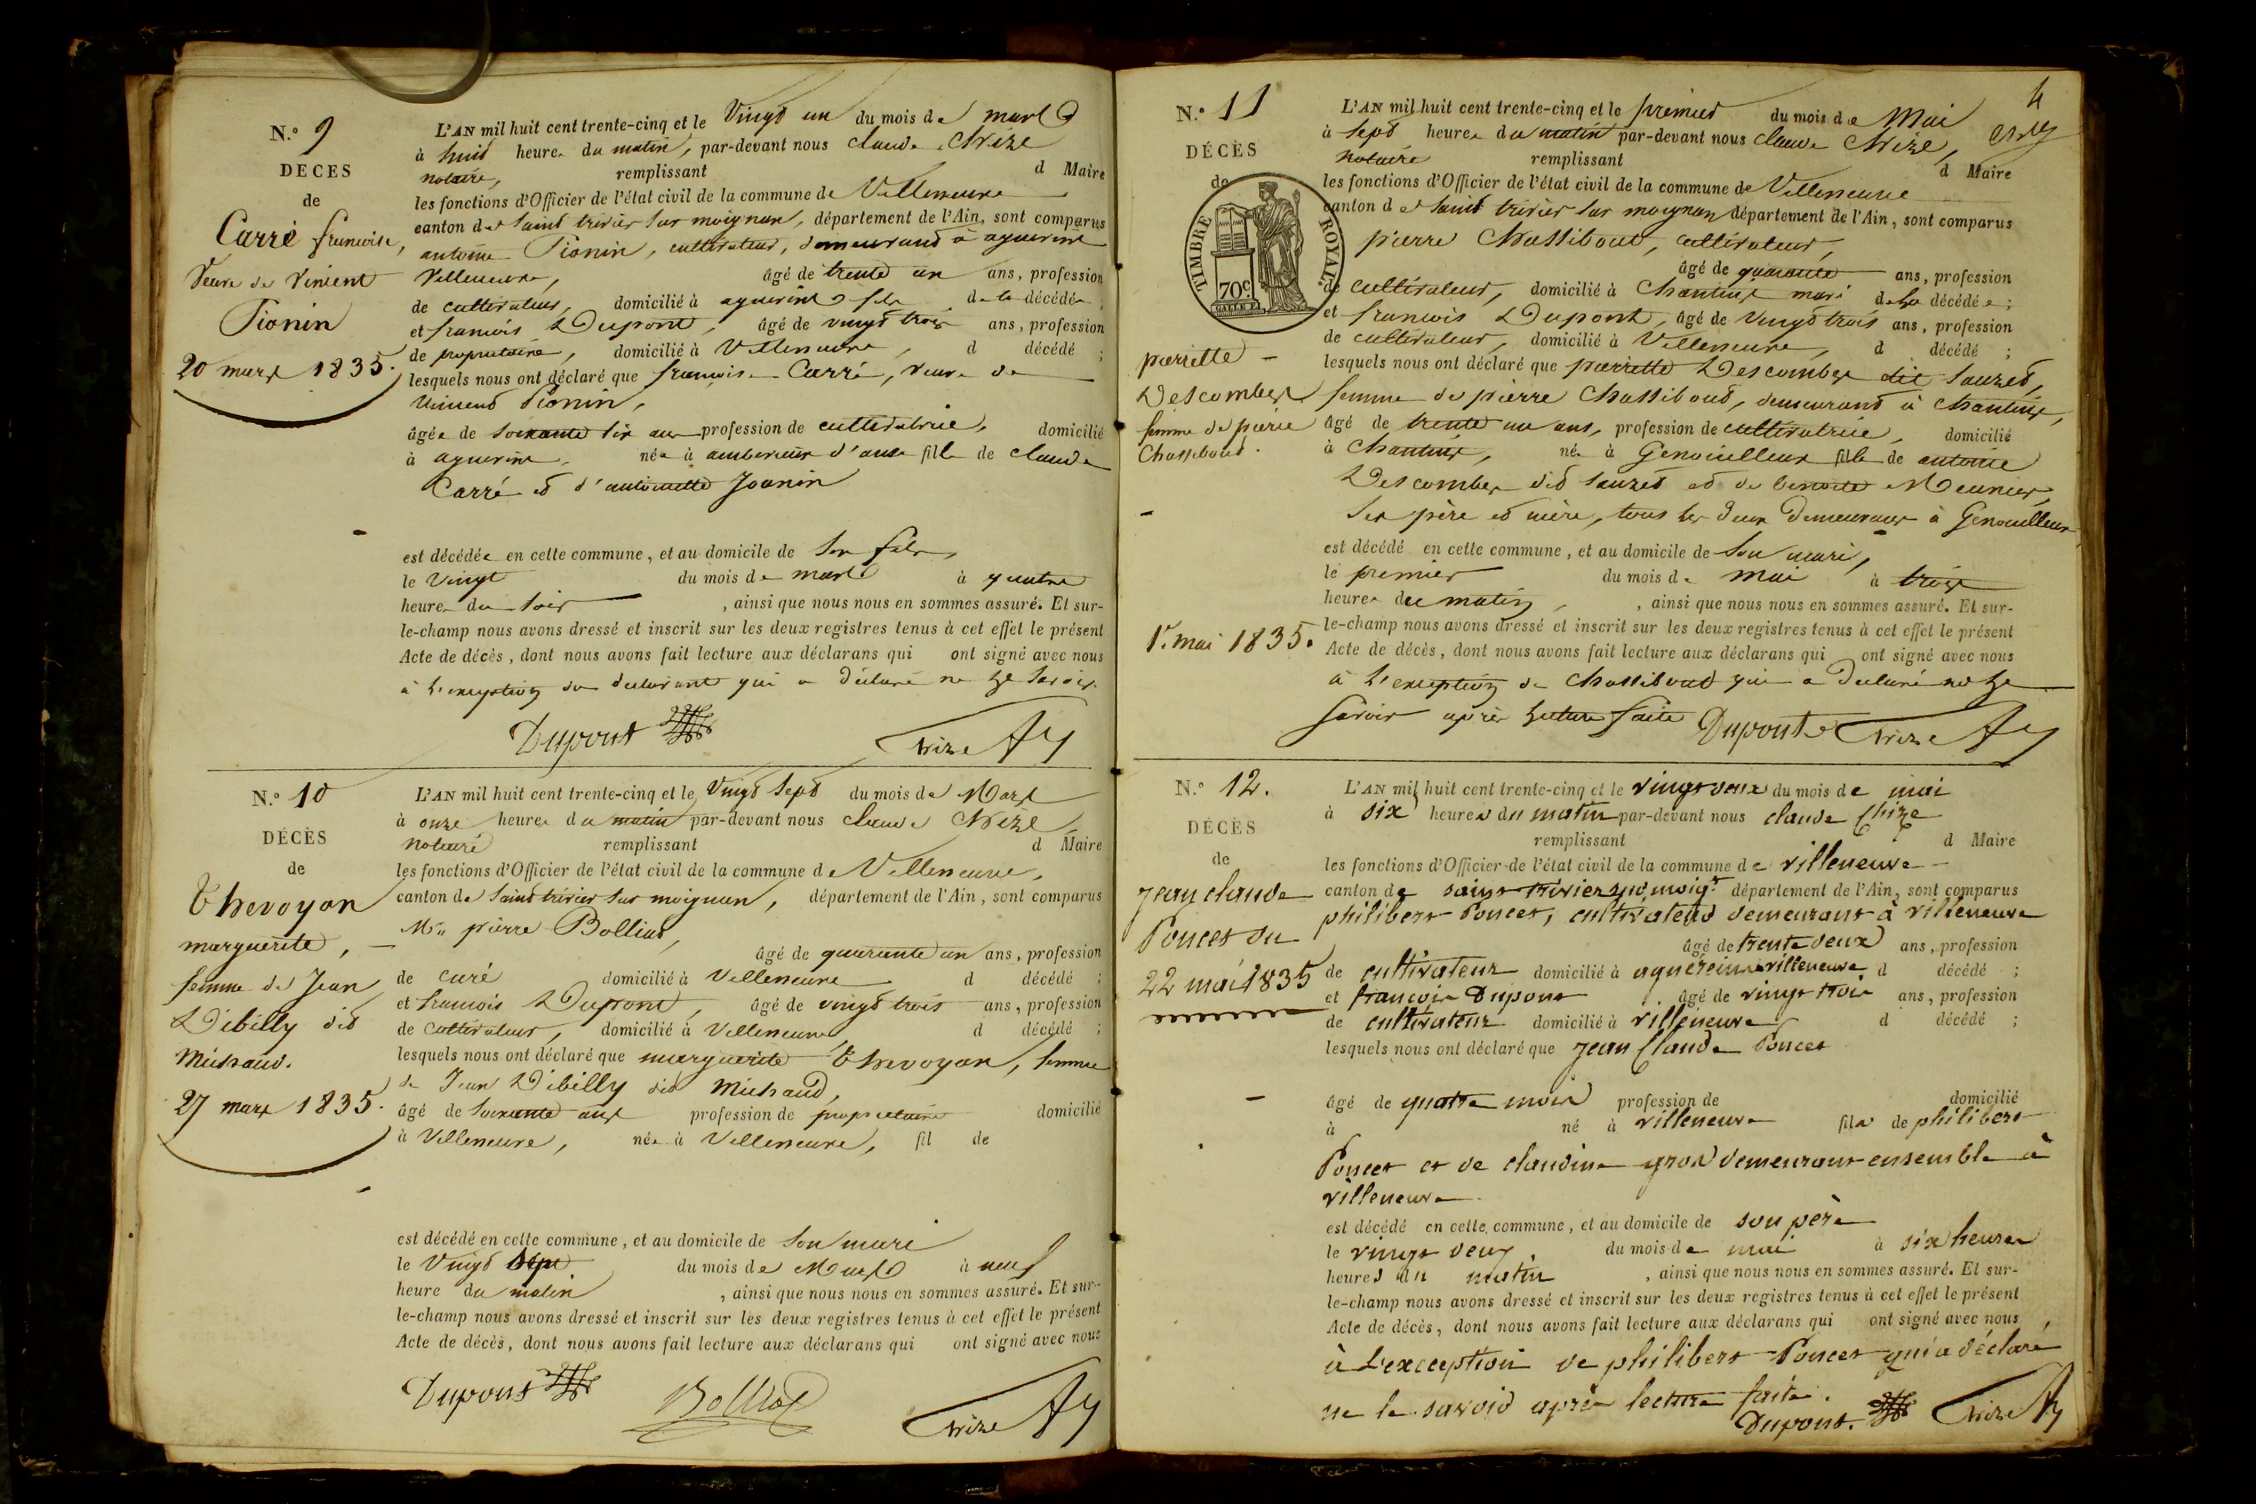 N.° 9
DÉCES
de
Carré francoise,
Veuve de Vincent
Pionin
20 mars 1835.
L'AN mil huit cent trente-cinq et le Vingt un du mois de mars
à huit heures du matin, par-devant nous claude Chize
notaire, remplissant d Maire
les fonctions d'Officier de l'état civil de la commune de Villeneuve
canton de saint trivier sur moignan, département de l'Ain, sont comparus
antoine Pionin, cultivateur, demeurant à aguereins
Villeneuve, âgé de trente un ans, profession
de cultivateur, domicilié à aguereins fils de la décédée ;
et francois Dupont, âgé de vingt trois ans, profession
de propriétaire, domicilié à Villeneuve, d décédé ;
lesquels nous ont déclaré que francoise Carré, veuve de
Vincent Pionin,
âgée de soixante six ans profession de cultivatrice, domicilié
à aguereins, née à amberieux d'anse fille de claude
Carré et d'antoinette Joanin
est décédée en cette commune, et au domicile de son fils,
le vingt du mois de mars à quatre
heures du soir , ainsi que nous nous en sommes assuré. Et sur-
le-champ nous avons dressé et inscrit sur les deux registres tenus à cet effet le présent
Acte de décès, dont nous avons fait lecture aux déclarans qui ont signé avec nous
à l'exception du déclarant qui a déclaré ne le savoir.
Dupont Chize
N.° 10
DÉCÈS
de
Thevoyon
marguerite,
femme de Jean
Dibilly dit
Michaud.
27 mars 1835.
L'AN mil huit cent trente-cinq et le Vingt sept du mois de Mars
à onze heures du matin par-devant nous claude Chize
notaire remplissant d Maire
les fonctions d'Officier de l'état civil de la commune de Villeneuve,
canton de Saint trivier sur moignan, département de l'Ain, sont comparus
Mr. pierre Bolliat,
âgé de quarante un ans, profession
de curé domicilié à Villeneuve d décédé ;
et francois Dupont, âgé de vingt trois ans, profession
de cultivateur, domicilié à Villeneuve d décédé ;
lesquels nous ont déclaré que marguerite Thevoyon, femme
de Jean Dibilly dit Michaud,
âgé de soixante ans profession de propriétaire domicilié
à Villeneuve, née à Villeneuve, fil de
est décédé en cette commune, et au domicile de son mari
le Vingt sept du mois de Mars à neuf
heure du matin , ainsi que nous nous en sommes assuré. Et sur-
le-champ nous avons dressé et inscrit sur les deux registres tenus à cet effet le présent
Acte de décès, dont nous avons fait lecture aux déclarans qui ont signé avec nous
Dupont Bolliat Chize
4
N.° 11
DÉCÈS
de
TIMBRE ROYAL
70c.
pierrette
Descombes
femme de pierre
Chassibout.
1er. mai 1835.
L'AN mil huit cent trente-cinq et le premier du mois de Mai
à sept heures du matin par-devant nous claude Chize,
notaire remplissant d Maire
les fonctions d'Officier de l'état civil de la commune de Villeneuve
canton de saint trivier sur moignan département de l'Ain, sont comparus
pierre Chassibout, cultivateur,
âgé de quarante ans, profession
de cultivateur, domicilié à Chanteins mari de la décédée ;
et francois Dupont, âgé de vingt trois ans, profession
de cultivateur, domicilié à Villeneuve, d décédé ;
lesquels nous ont déclaré que pierrette Descombes dit Sauzet,
femme de pierre Chassibout, demeurant à Chanteins,
âgé de trente un ans, profession de cultivatrice, domicilié
à Chanteins, née à Genouilleux fille de antoine
Descombes dit Sauzet et de benoite Meunier,
ses père et mère, tous les deux demeurans à Genouilleux
est décédé en cette commune, et au domicile de son mari,
le premier du mois de mai à trois
heures du matin, , ainsi que nous nous en sommes assuré. Et sur-
le-champ nous avons dressé et inscrit sur les deux registres tenus à cet effet le présent
Acte de décès, dont nous avons fait lecture aux déclarans qui ont signé avec nous
à l'exception de Chassibout qui a déclaré ne le
savoir après lecture faite Dupont Chize
N.° 12.
DÉCÈS
de
jean claude
Poncet du
22 mai 1835
L'AN mil huit cent trente-cinq et le vingt deux du mois de mai
à six heures du matin par-devant nous claude Chize
remplissant d Maire
les fonctions d'Officier de l'état civil de la commune de villeneuve
canton de saint trivier sur moigt. département de l'Ain, sont comparus
philibert Poncet, cultivateur demeurant à villeneuve
âgé de trente deux ans, profession
de cultivateur domicilié à aguéreins villeneuve d décédé ;
et françois Dupont âgé de vingt trois ans, profession
de cultivateur domicilié à villeneuve d décédé ;
lesquels nous ont déclaré que jean Claude Poncet
âgé de quatre mois profession de domicilié
à né à villeneuve fils de philibert
Poncet et de claudine gros demeurant ensemble à
villeneuve
est décédé en cette commune, et au domicile de son père
le vingt deux du mois de mai à six heures
heures du matin , ainsi que nous nous en sommes assuré. Et sur-
le-champ nous avons dressé et inscrit sur les deux registres tenus à cet effet le présent
Acte de décès, dont nous avons fait lecture aux déclarans qui ont signé avec nous
à L'exception de philibert Poncet qui a déclaré
ne le savoir après lecture faite.
Dupont. Chize